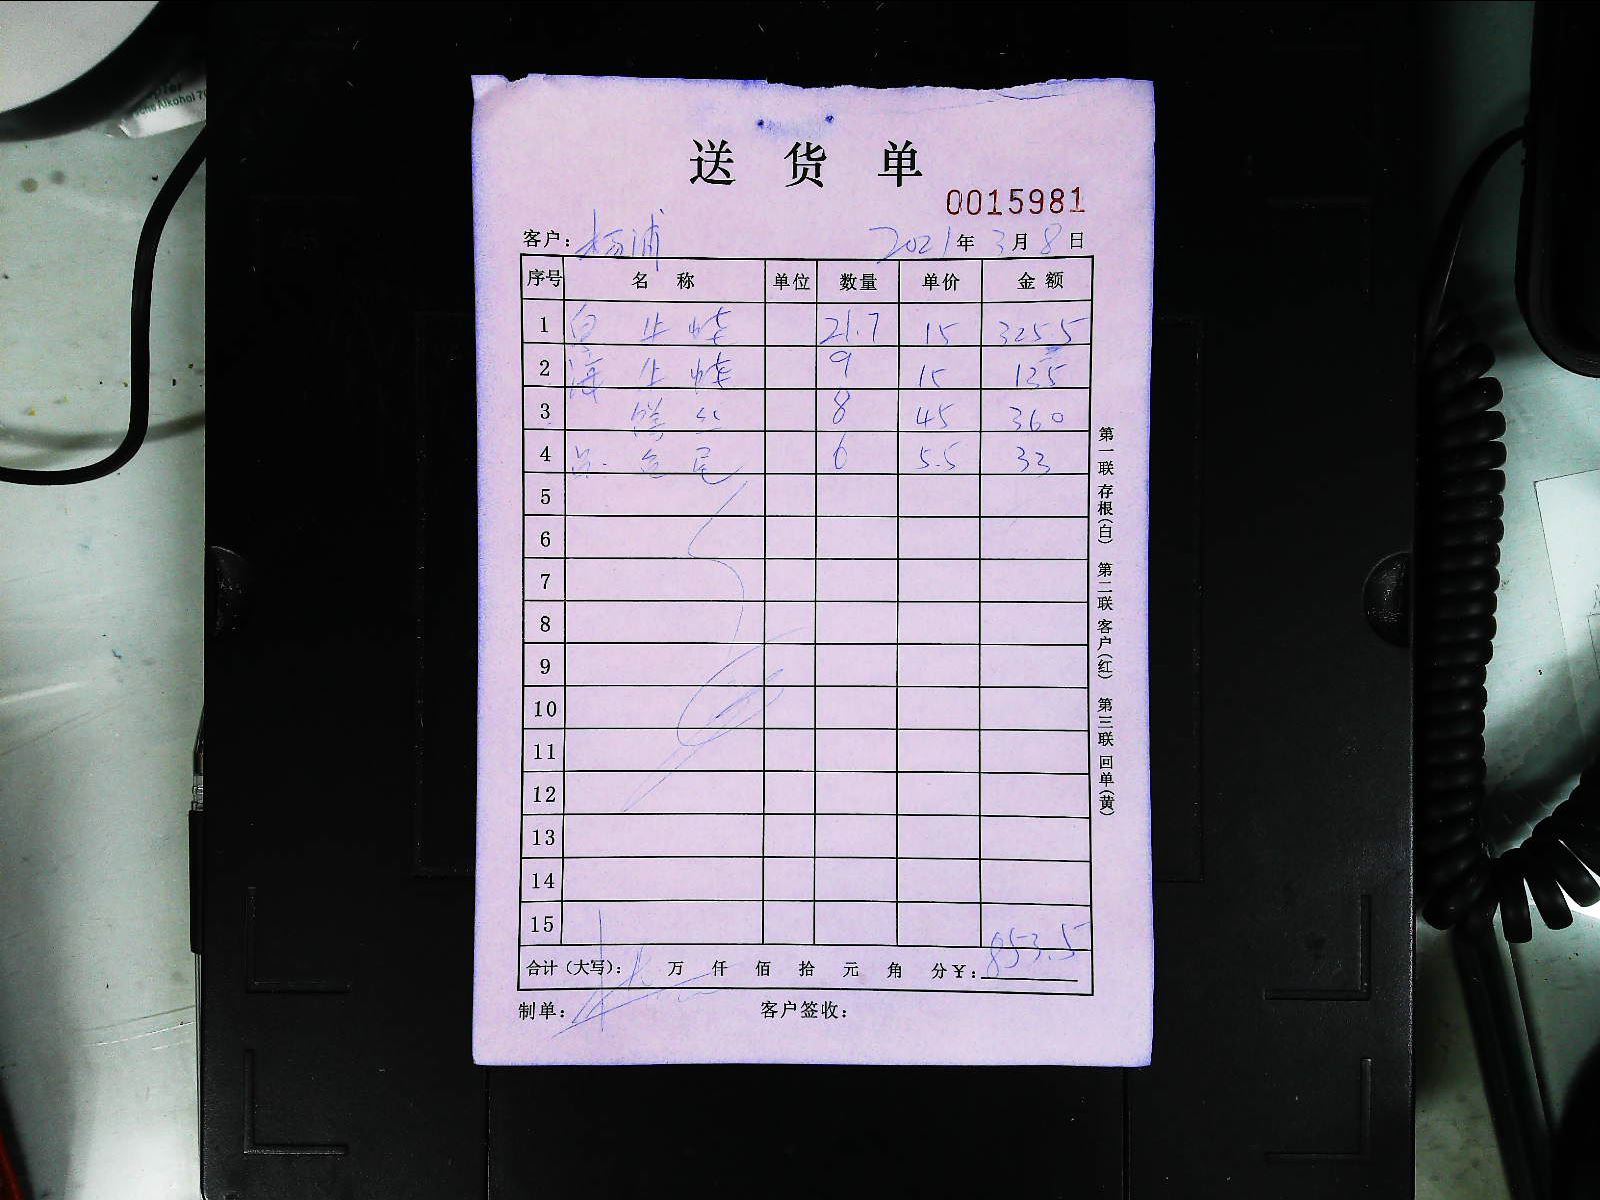 送货单
0015981
客户: 杨浦 2021年3月8日
序号 名称 单位 数量 单价 金额
1 白 21.7 15 325.5
2 海 9 15 135
3 8 45 360
4 尾 6 5.5 33
5
6
7
8
9
10
11
12
13
14
15
合计(大写): 万 仟 佰 拾 元 角 分¥: 853.5
制单: 客户签收:
第一联 存根(白) 第二联 客户(红) 第三联 回单(黄)